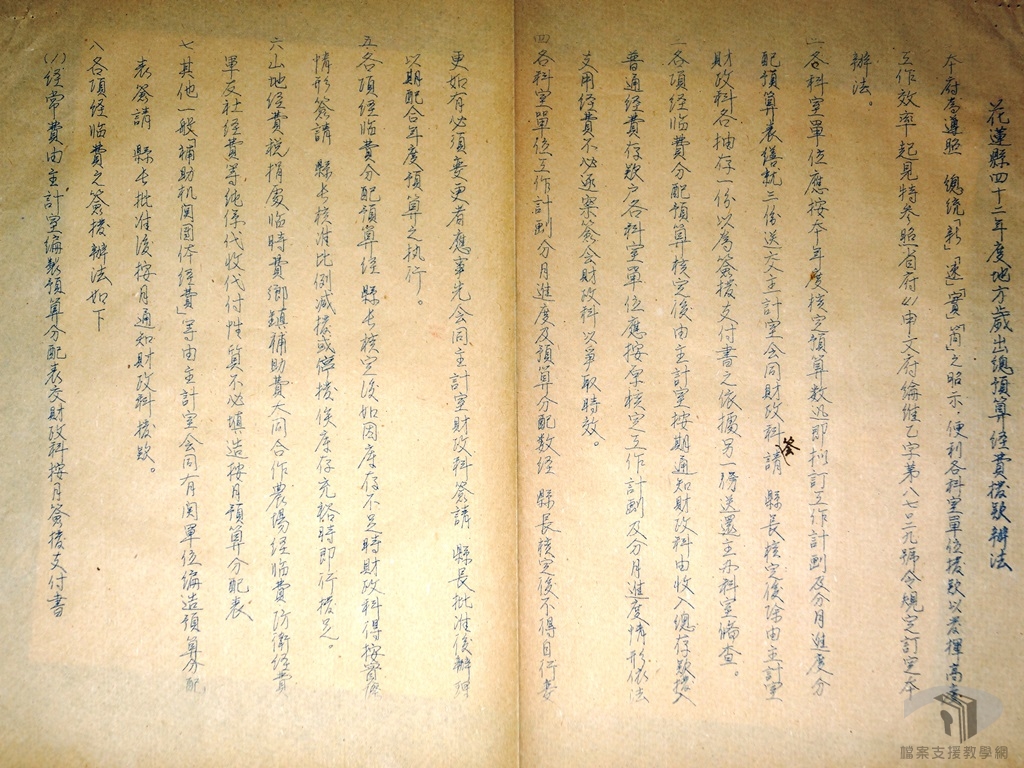 花蓮縣四十二年度地方歲出總預算經費撥款辦法
本府為遵照 總統「新」「速」「實」「簡」之昭示,便利各科室單位撥款以發揮高度
工作效率起見特參照省府(42)申文府綸維乙字第八七二九號令規定訂定本
辦法。
一各科室單位應按本年度核定預算數迅即擬訂工作計劃及分月進度分
配預算表繕就三份送交主計室會同財政科簽請 縣長核定後除由主計室
財政科各抽存一份以為簽撥支付書之依據另一份送還主办科室備查。
二各項經臨費分配預算核定後由主計室按期通知財政科由收入總存款撥入
普通經費存款戶各科室單位應按原核定工作計劃及分月進度情形依法
支用經費不必逐案簽会財政科以爭取時效。
四各科室單位工作計劃分月進度及預算分配数經 縣長核定後不得自行变
更如有必須变更者應事先会同主計室財政科簽請 縣長批准後辦理
以期配合年度預算之執行。
五各項經臨費分配預算經 縣长核定後如因庫存不足時財政科得按實際
情形簽請 縣长核准比例減撥或緩撥俟庫存充裕時即行撥足。
六山地經費稅捐處臨時費鄉鎮補助費大同合作農場經臨費防衛經費
軍友社經費等純係代收代付性質不必填造按月預算分配表
七其他一般「補助机関団体經費」等由主計室会同有関單位編造預算分配
表簽請 縣长批准後按月通知財政科撥款。
八各項經臨費之簽撥辦法如下
(1)經常費由主計室編製預算分配表交財政科按月簽撥支付書
檔案支援教學網